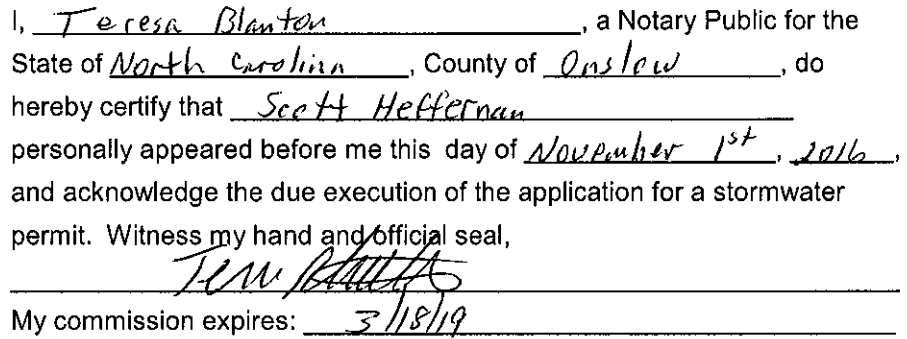 I, Teresa Blanton, a Notary Public for the
State of North Carolina, County of Onslow, do
hereby certify that Scott Heffernan
personally appeared before me this day of November 1st, 2016,
and acknowledge the due execution of the application for a stormwater
permit. Witness my hand and official seal,
My commission expires: 3/18/19